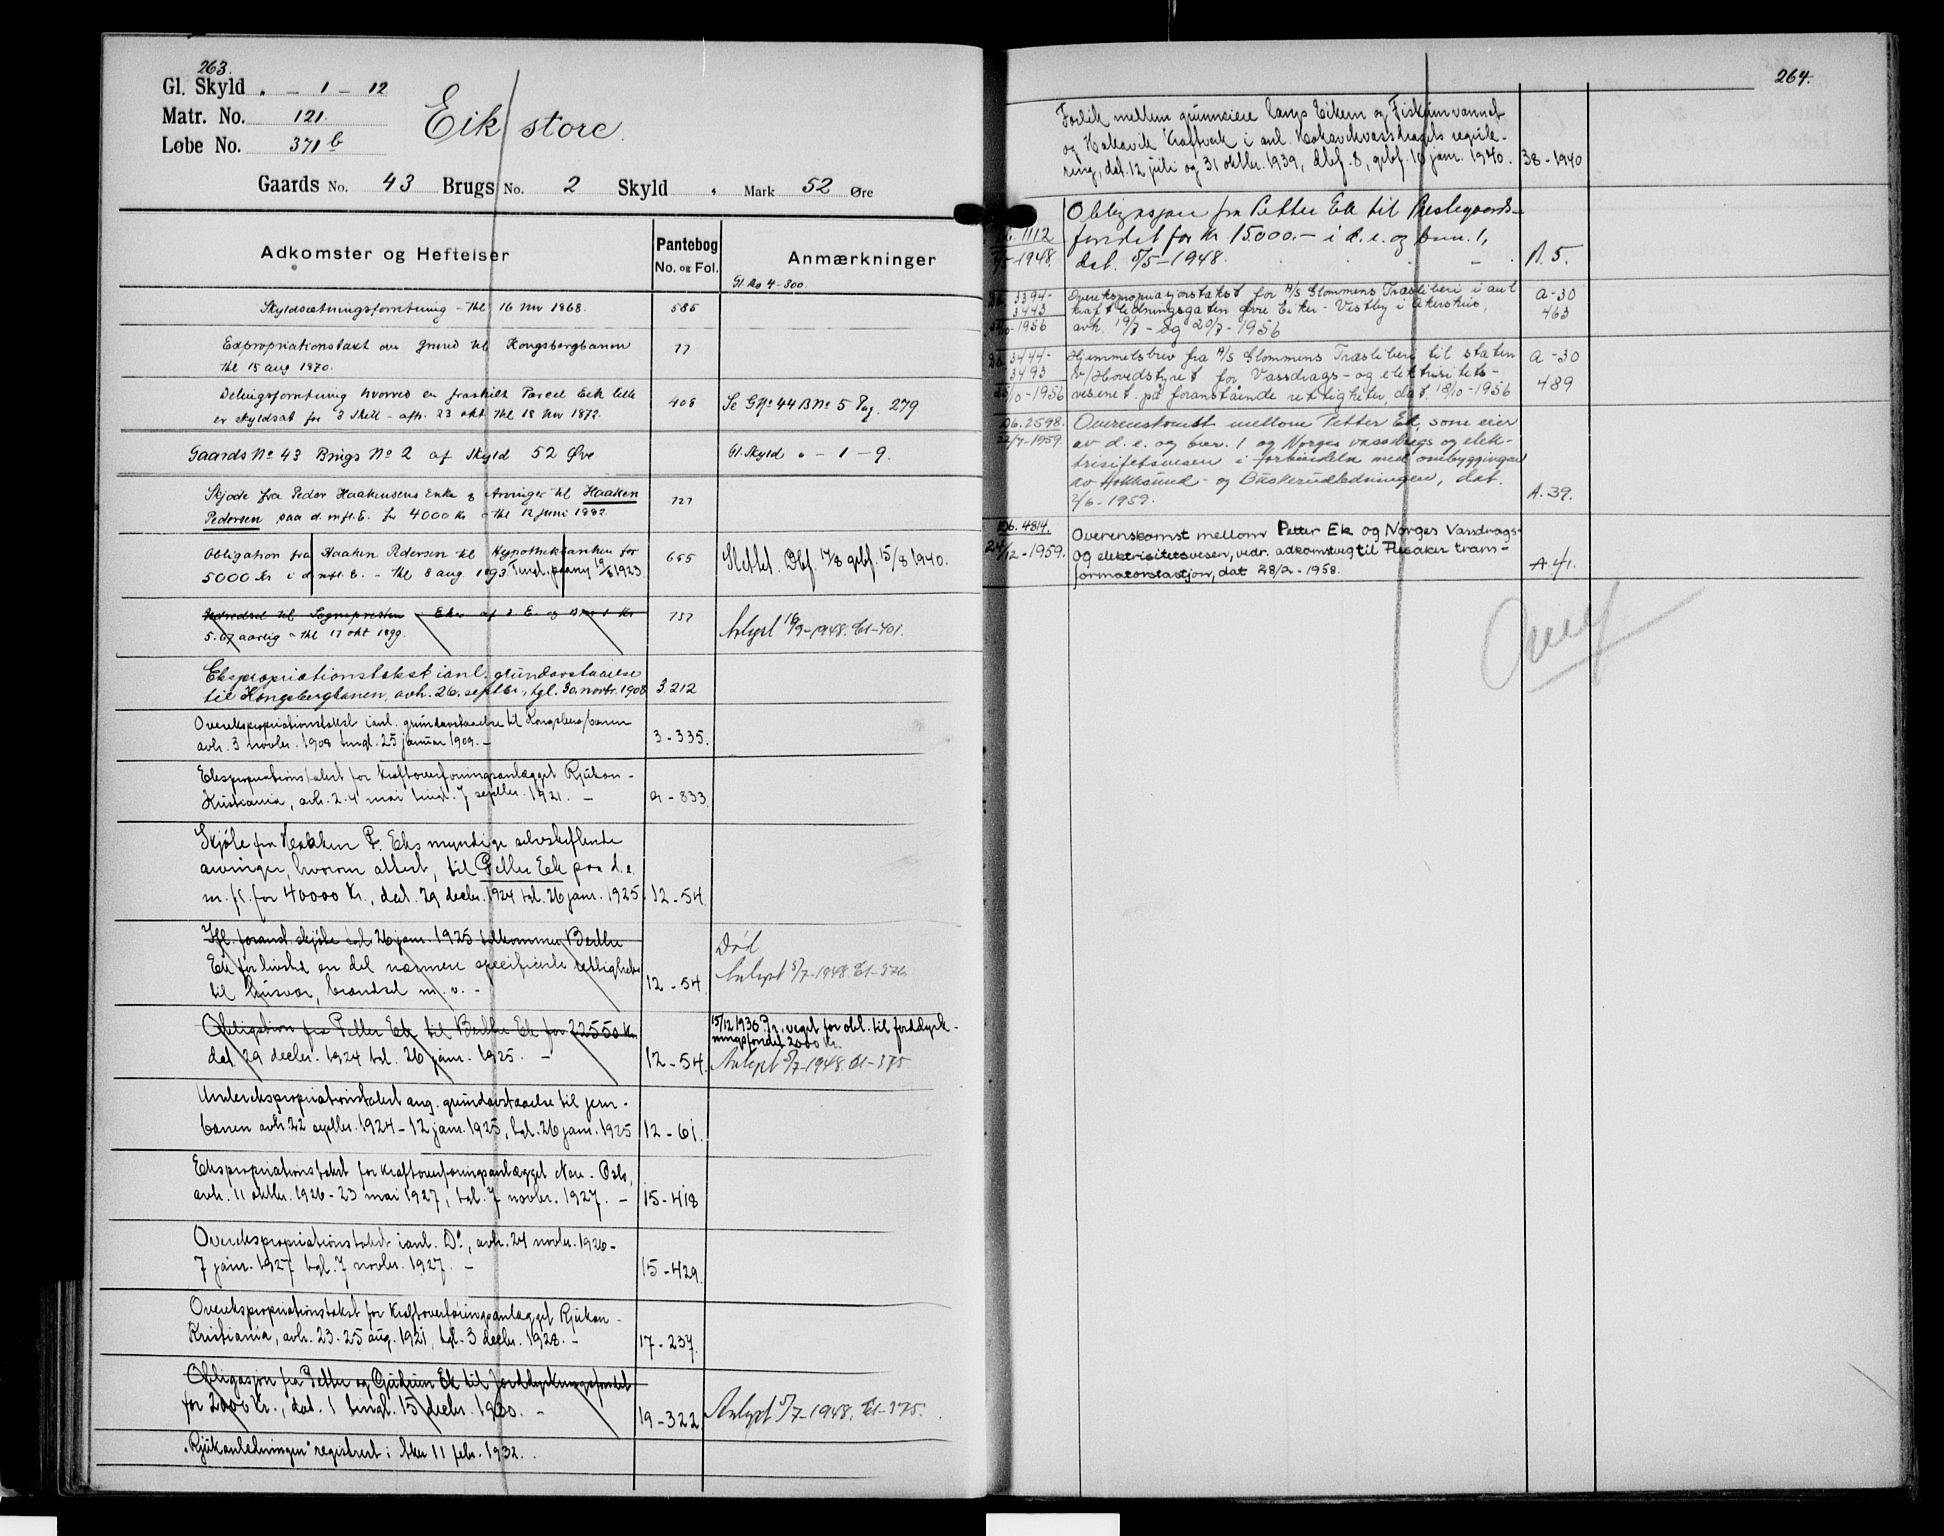 263.
Gl. Skyld „ - 1 - 12
Matr. No. 121.
Løbe No. 371 b
Eik store.
Gaards No. 43 Brugs No. 2 Skyld „ Mark 52 Øre
Adkomster og Heftelser
Pantebog
No. og Fol.
Anmærkninger
Gl. No 4-300.
Skyldsætningsforretning - thl 16 Nov 1868. 585
Expropriationstaxt over grund til Kongsbergbanen 77
thl 15 aug 1870.
Delingsforretning hvorved en fraskilt Parcel Eik lille
er skyldsat for 3 Skill - afh. 23 okt thl 18 Nov 1872. 408 Se GNo 44 BNo 5 Pag. 279
Gaards No 43 Brugs No 2 af Skyld 52 Øre Gl. Skyld „ - 1 - 9.
Skjøde fra Peder Haakensens Enke & Arvinger til Haaken
Pedersen paa d. m.fl. E. for 4000 Kr - thl 12 juni 1882. 727
Obligation fra Haaken Pedersen til Hypothekbanken for
5000 Kr i d. m.fl. E. - thl 8 aug. 1893. Tingl. paany 19/6 1923 655 Slettet. Dbf. 14/8 grbf. 15/8 1940.
til Sognepresten Eker af d. E. og Kr
5.07 aarlig - thl 17 okt 1899. 757 Avlyst 16/9-1948. El-401.
Ekspropriationstakst i anl. grundavstaaelse
til Kongsbergbanen, avh. 26. septbr., tgl. 30. novbr. 1908 3.212
Overekspropriationstakst i anl. grundavstaaelse til Kongsbergbanen
avh. 3 novbr. 1908 tingl. 25 januar 1909. - 3-335.
Ekspropriationstakst for Kraftoverføringsanlægget Rjukan -
Kristiania, avh. 2.4 mai tingl. 7 septbr. 1921. - 9-833.
Skjøte fra Haaken P. Eks myndige selvskiftende
arvinger, hvorom attest, til Petter Ek paa d. e.
m. fl. for 40000 Kr., dat. 29 decbr. 1924 tgl. 26 jan. 1925. 12-54.
Ifl. foranst. skjøte tgl 26 jan. 1925 tilkommer Berthe
Ek for livstid en del nærmere specificerte rettigheter
til husvær, brændsel m. v. - 12-54. Død
Avlyst 5/7-1948. El-376
Obligation fra Petter Ek til Berthe Ek for 22550 Kr.
dat. 29 decbr. 1924 tgl. 26 jan. 1925. - 12-54. 15/12 1930 Pr. veget for obl. til jorddyrk-
ningsfondet 2000 Kr.
Avlyst 5/7-1948. El-375
Underekspropriationstakst ang. grundavstaaelse til jern-
banen avh. 22 septbr. 1924 - 12 jan. 1925, tgl. 26 jan. 1925 12-61.
Ekspropriationstakst for Kraftoverføringsanlægget Nore - Oslo,
avh. 11 oktbr. 1926 - 23 mai 1927, tgl. 7 novbr. 1927. - 15-418
Overekspropriationstakst i anl. Do, avh. 24 novbr. 1926 -
7 jan. 1927 tgl. 7 novbr. 1927. - 15-429.
Overekspropriationstakst for Kraftoverføringsanlægget Rjukan -
Kristiania, avh. 23-25 aug. 1921, tgl. 3 decbr. 1928. - 17-237.
Obligasjon fra Petter og Gudrun Ek til Jorddyrkningsfondet
for 2000 Kr., dat. 1 tingl. 15 decbr. 1930. - 19-322. Avlyst 5/7-1948. El-375.
"Rjukanledningen" registrert i Aker 11 febr. 1932.
264.
Forlik mellem grunneiere langs Eikern og Fiskumvannet
og Hakavik Kraftverk i anl. Hakavikvassdragets regule-
ring, dat. 12 juli og 31 oktbr. 1939, dbf. 8, grbf. 10 jan. 1940. 38-1940
Db. 1112 Obligasjon fra Petter Ek til Prestegaards-
fondet for Kr 15000.- i d. e. og bnr. 1,
/5-1948. dat. 5/5-1948. A. 5.
Db. 3394- Overekspropriasjonstakst for A/S Glommens Træsliberi i anl. A-30
3443 kraftledningsgaten øvre Eiker - Vestby i Akershus, 463
/10-1956 avh. 19/7- og 20/7-1956
Db. 3444- Hjemmelsbrev fra A/S Glommens Træsliberi til staten A-30
3493 v/Hovedstyret for Vassdrags- og elektrisitets- 489
25/10-1956 vesenet på foranstående rettigheter, dat. 18/10-1956
Db. 2598. Overenskomst mellom Petter Ek, som eier
22/7-1959. av d. e. og bnr. 1 og Norges vassdrags og elek-
trisitetsvesen i forbindelse med ombyggingen
av Hokksund- og Buskerudledningen, dat.
2/6-1959. A. 39.
Db. 4814. Overenskomst mellom Petter Ek og Norges Vassdrags-
24/12-1959. og elektrisitetsvesen, vedr. adkomstveg til Flesaker trans-
formatorstasjon, dat 28/2-1958. A 41.
Overf.